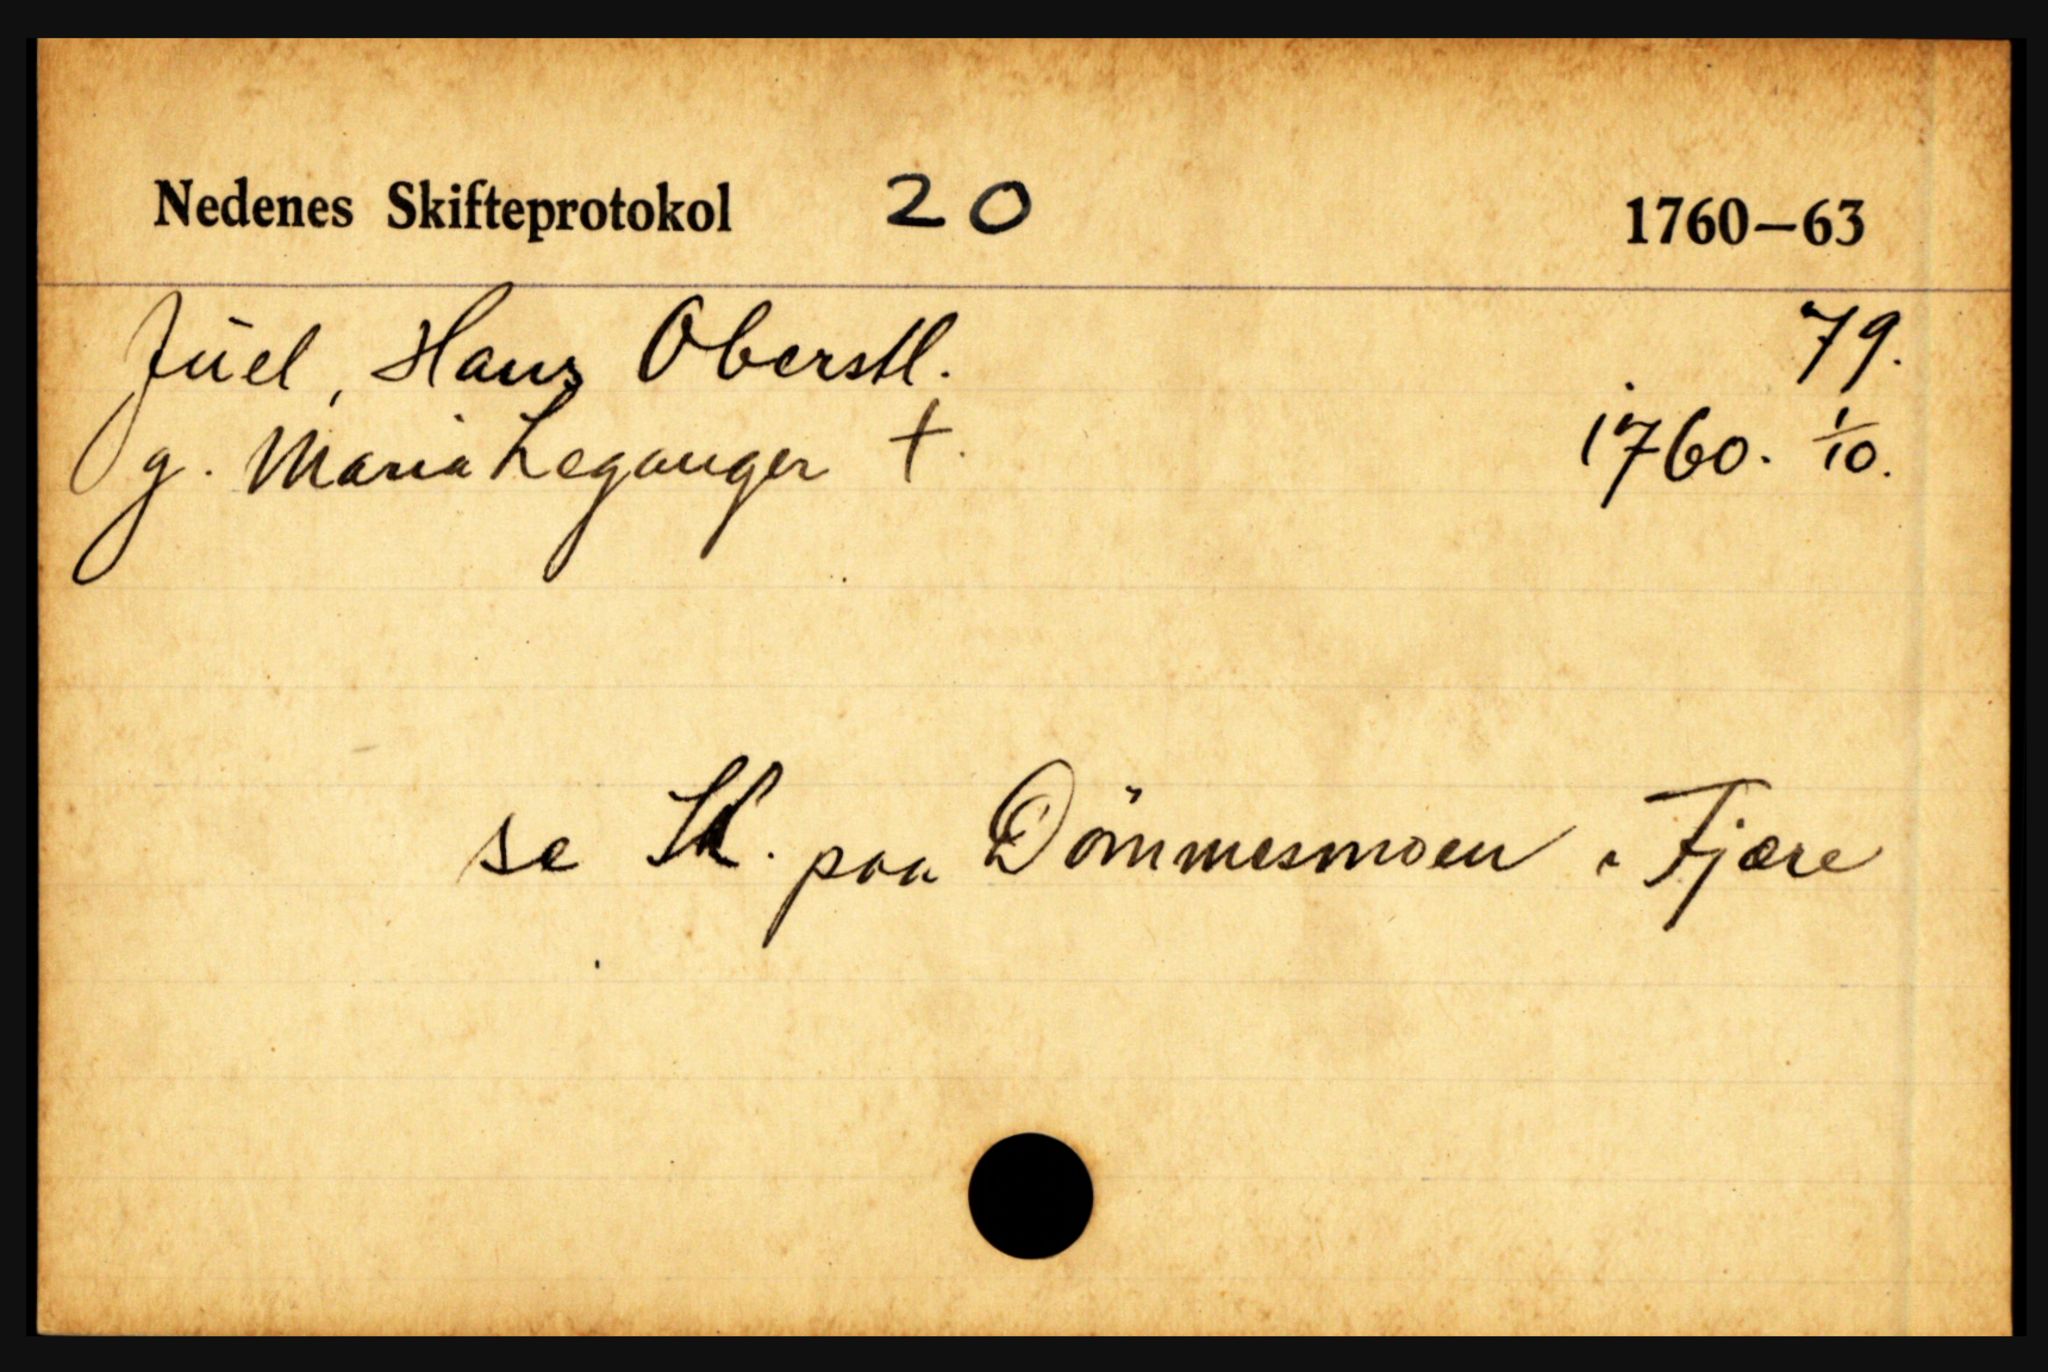 Nedenes Skifteprotokol 20 1760–63
Jūel, Hans Oberstl. 79.
g. Maria Leganger †. 1760. 1/10.
se Sk. paa Dömmesmoen i Fjære